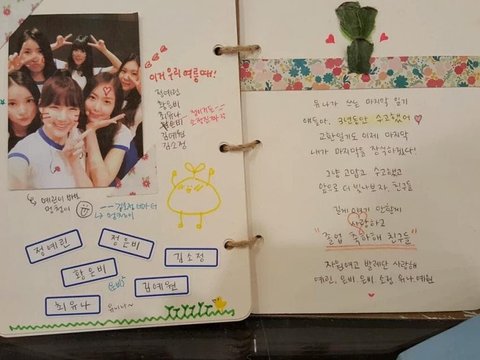 이거 우리 여름때!
정예린
황은비
최유나
정은비
김예원
김소정
예린이 바보
멍청이
정예린
정은비
김소정
황은비
은비
김예원
최유나
유나가 쓰는 마지막 일기
얘들아, 3년동안 수고했어
교환일기도 이제 마지막
내가 마지막을 장식하겠다!
그냥 고맙고 수고했고
앞으로 더 빛나보자, 친구들
길게 얘기 안할게
사랑하고
"졸업 축하해 친구들"
자원여고 방레단 사랑해
예린, 은비, 은비, 소정, 유나, 예원